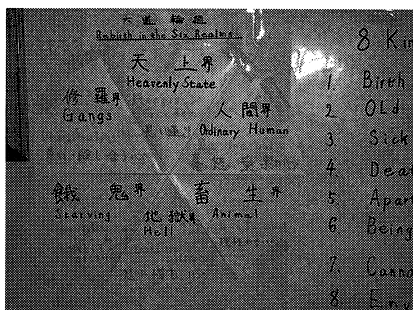 六道輪迴
Rebirth in the Six Realms
天上界
Heavenly State
修羅界
Gangs
人間界
Ordinary Human
餓鬼界
Starving
畜生界
Animal
地獄界
Hell
8 Ki
1. Birth
2 Old
3. Sick
4. Dea
5. Apar
6. Being
7. Canno
8